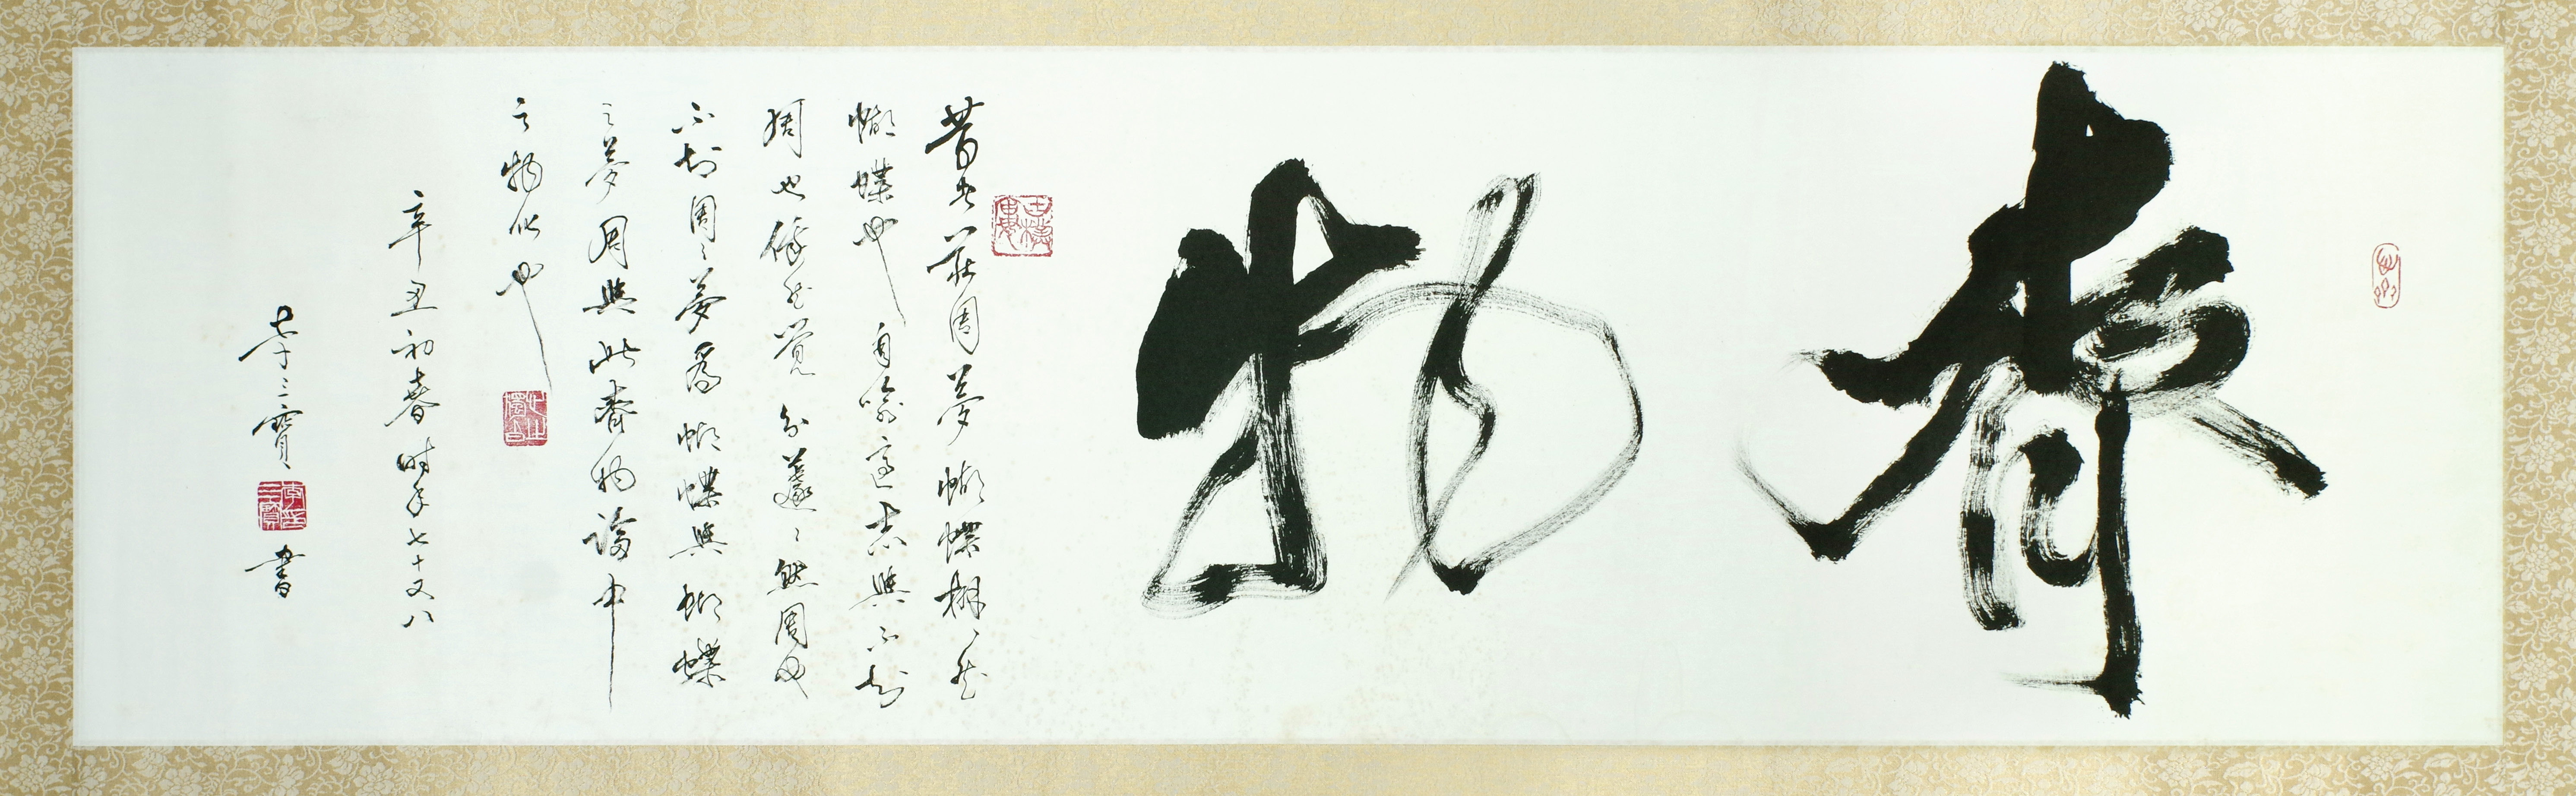 齊物
昔者莊周夢蝴蝶栩々然
蝴蝶也自喻適志與不知
周也俄然覺則蘧々然周也
不知周之夢爲蝴蝶與蝴蝶
之夢周與此齊物論中
之物化也
辛丑初春時年七十又八
李三寶
李三寶印
書